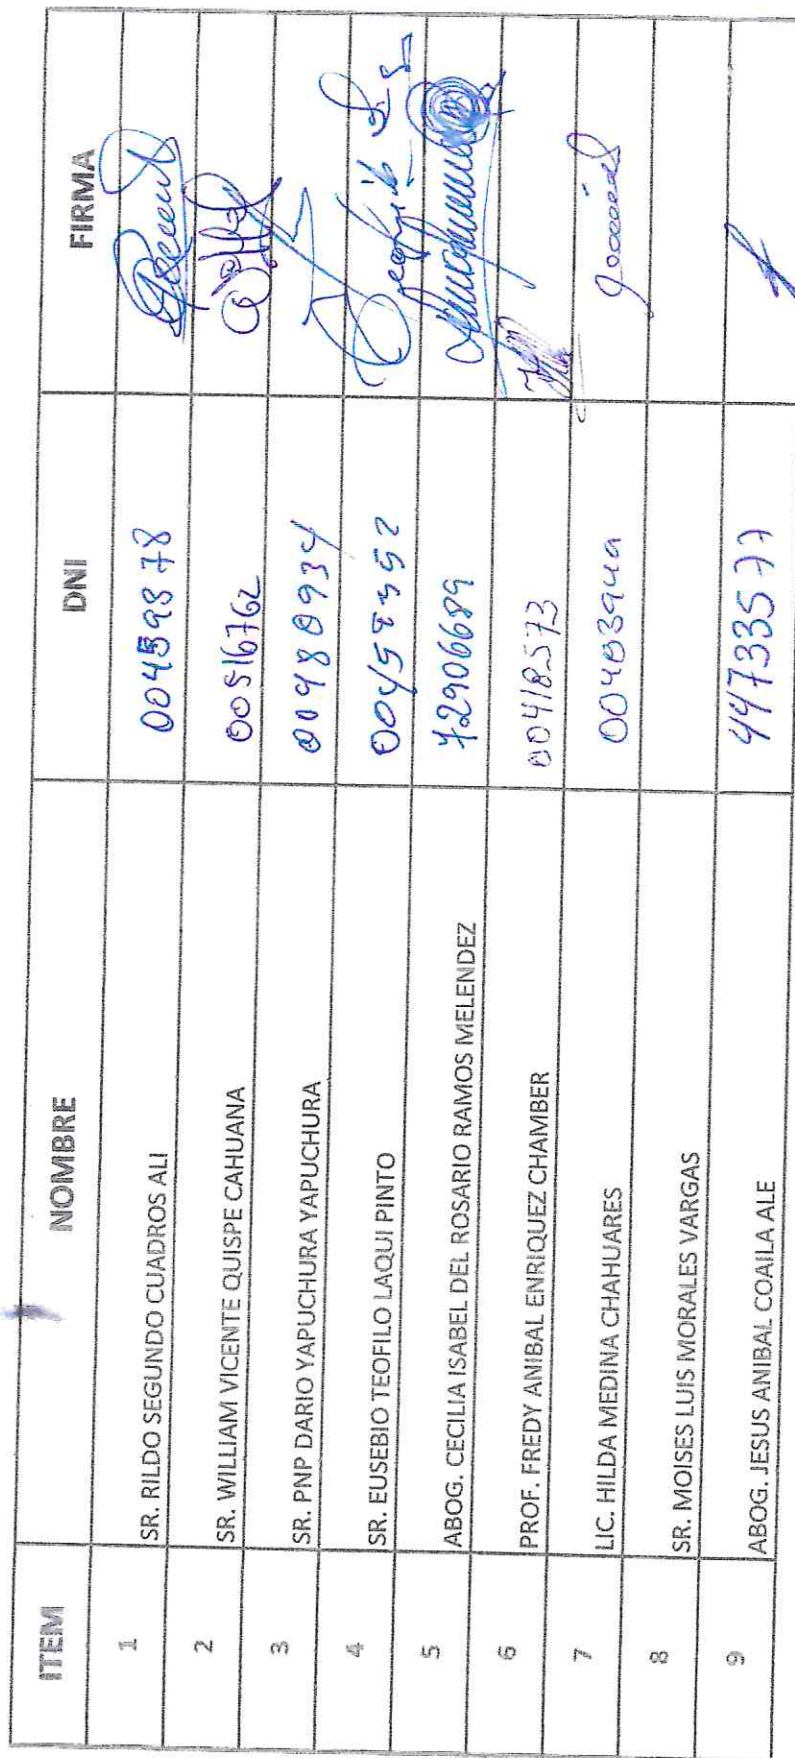 ITEM NOMBRE DNI FIRMA
1 SR. RILDO SEGUNDO CUADROS ALI 00459878
2 SR. WILLIAM VICENTE QUISPE CAHUANA 00516762
3 SR. PNP DARIO YAPUCHURA YAPUCHURA 00980934
4 SR. EUSEBIO TEOFILO LAQUI PINTO
5 ABOG. CECILIA ISABEL DEL ROSARIO RAMOS MELENDEZ 72906689
6 PROF. FREDY ANIBAL ENRIQUEZ CHAMBER 00418573
7 LIC. HILDA MEDINA CHAHUARES
8 SR. MOISES LUIS MORALES VARGAS
9 ABOG. JESUS ANIBAL COAILA ALE 44733577